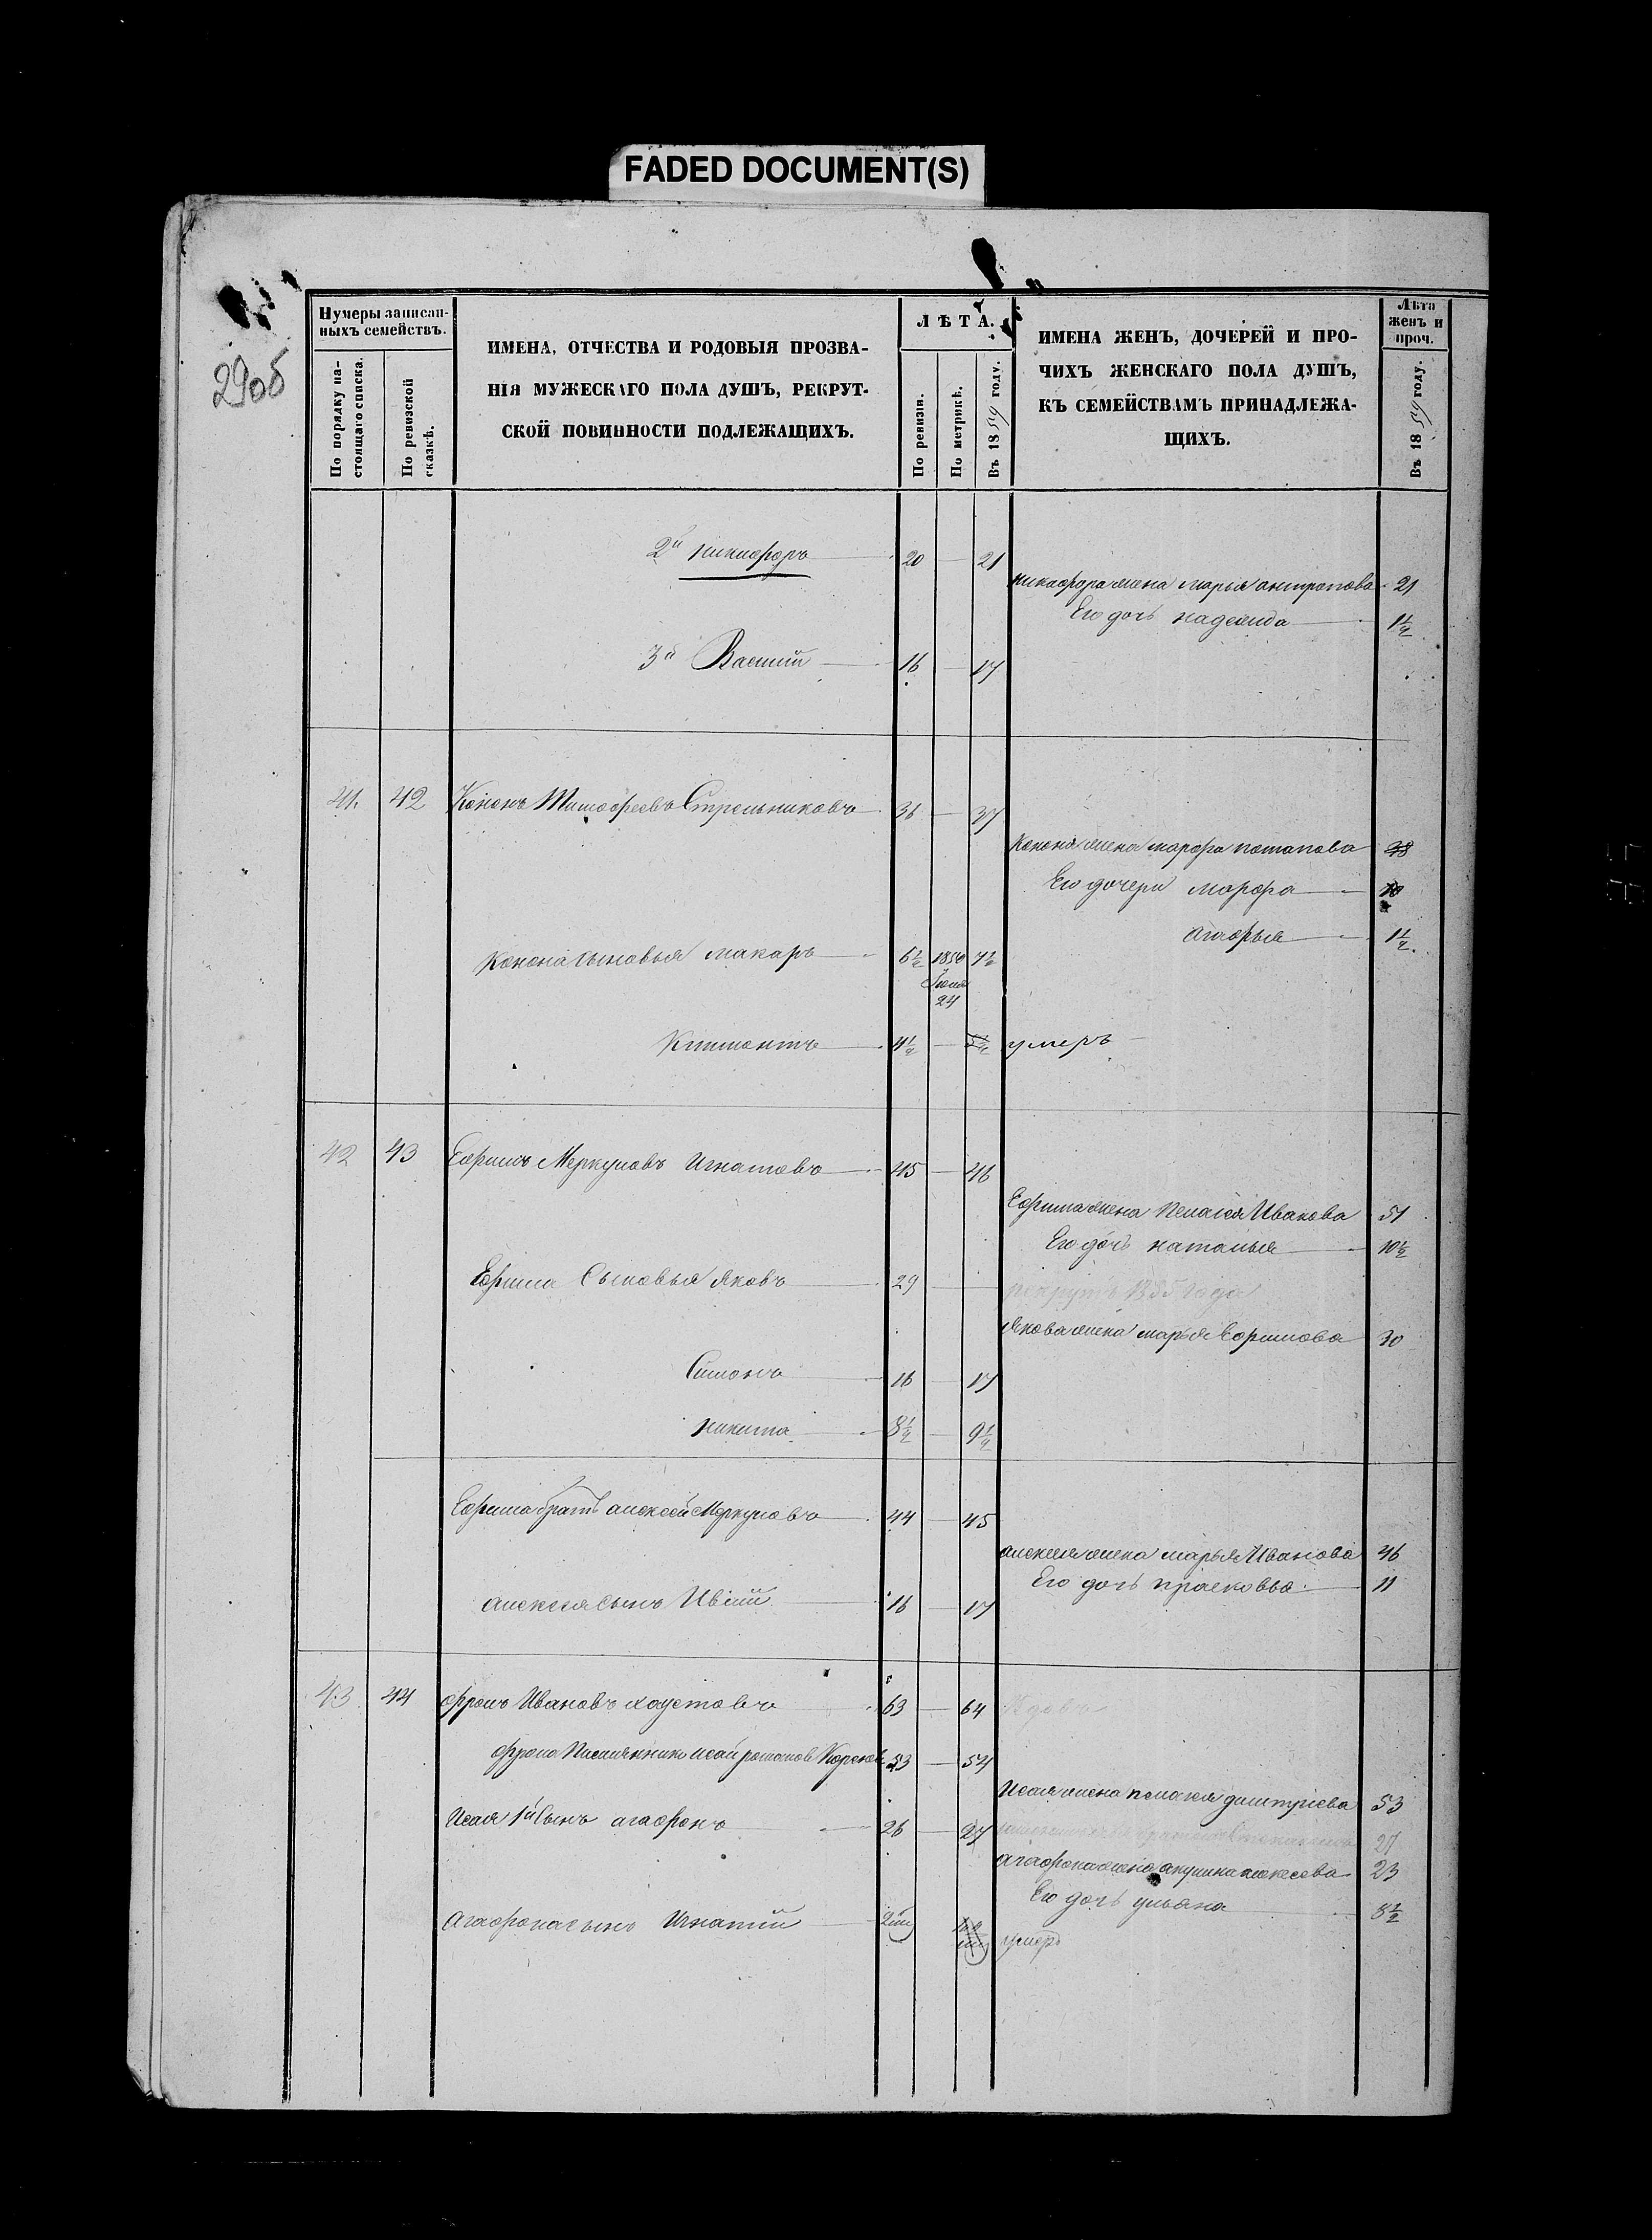 FADED DOCUMENT(S)
29об
Нумеры записан-
ныхъ семействъ.
По порядку на-
стоящаго списка.
По ревизской
сказкѣ.
ИМЕНА, ОТЧЕСТВА И РОДОВЫЯ ПРОЗВА-
НІЯ МУЖЕСКАГО ПОЛА ДУШЪ, РЕКРУТ-
СКОЙ ПОВИННОСТИ ПОДЛЕЖАЩИХЪ.
ЛѢТА.
По ревизіи.
По метрикѣ.
Въ 1859 году.
ИМЕНА ЖЕНЪ, ДОЧЕРЕЙ И ПРО-
ЧИХЪ ЖЕНСКАГО ПОЛА ДУШЪ,
КЪ СЕМЕЙСТВАМЪ ПРИНАДЛЕЖА-
ЩИХЪ.
Лѣта
женъ и
проч.
Въ 1859 году.
2й никифоръ 20 — 21
никифора жена марья антропова 21
Его дочь надежда 1½
3й Василій 16 — 17
41. 42 Кононъ Тимофеевъ Стрельниковъ 36 — 37
Конона жена марфа потапова 38
Его дочери марфа 10
агафья 1½
Конона сыновья макаръ 6½ 1850 7½
Июня
24
Климонтъ 4½ — 5½ умеръ
42 43 Ефимъ Меркуловъ Игнатовъ 45 — 46
Ефима жена Пелагея Иванова 51
Его дочь наталья 10½
Ефима Сыновья Яковъ 29 — рекрутъ 1855 года
Якова жена марья Ефимова 30
Симонъ 16 — 17
никита 8½ — 9½
Ефима братъ алексей Меркуловъ 44 — 45
алексея жена марья Иванова 46
Его дочь прасковья 11
алексея сынъ Ивлий 16 — 17
43 44 фролъ Ивановъ хаустовъ 63 — 64 вдовъ
фрола Племянникъ исай романовъ 53 — 54
Исая жена пелагея дмитріева 53
Исая 1й Сынъ агафонъ 26 — 27
27
агафона жена акулина алексеева 23
Его дочь ульяна 8½
агафона сынъ Игнатий умеръ